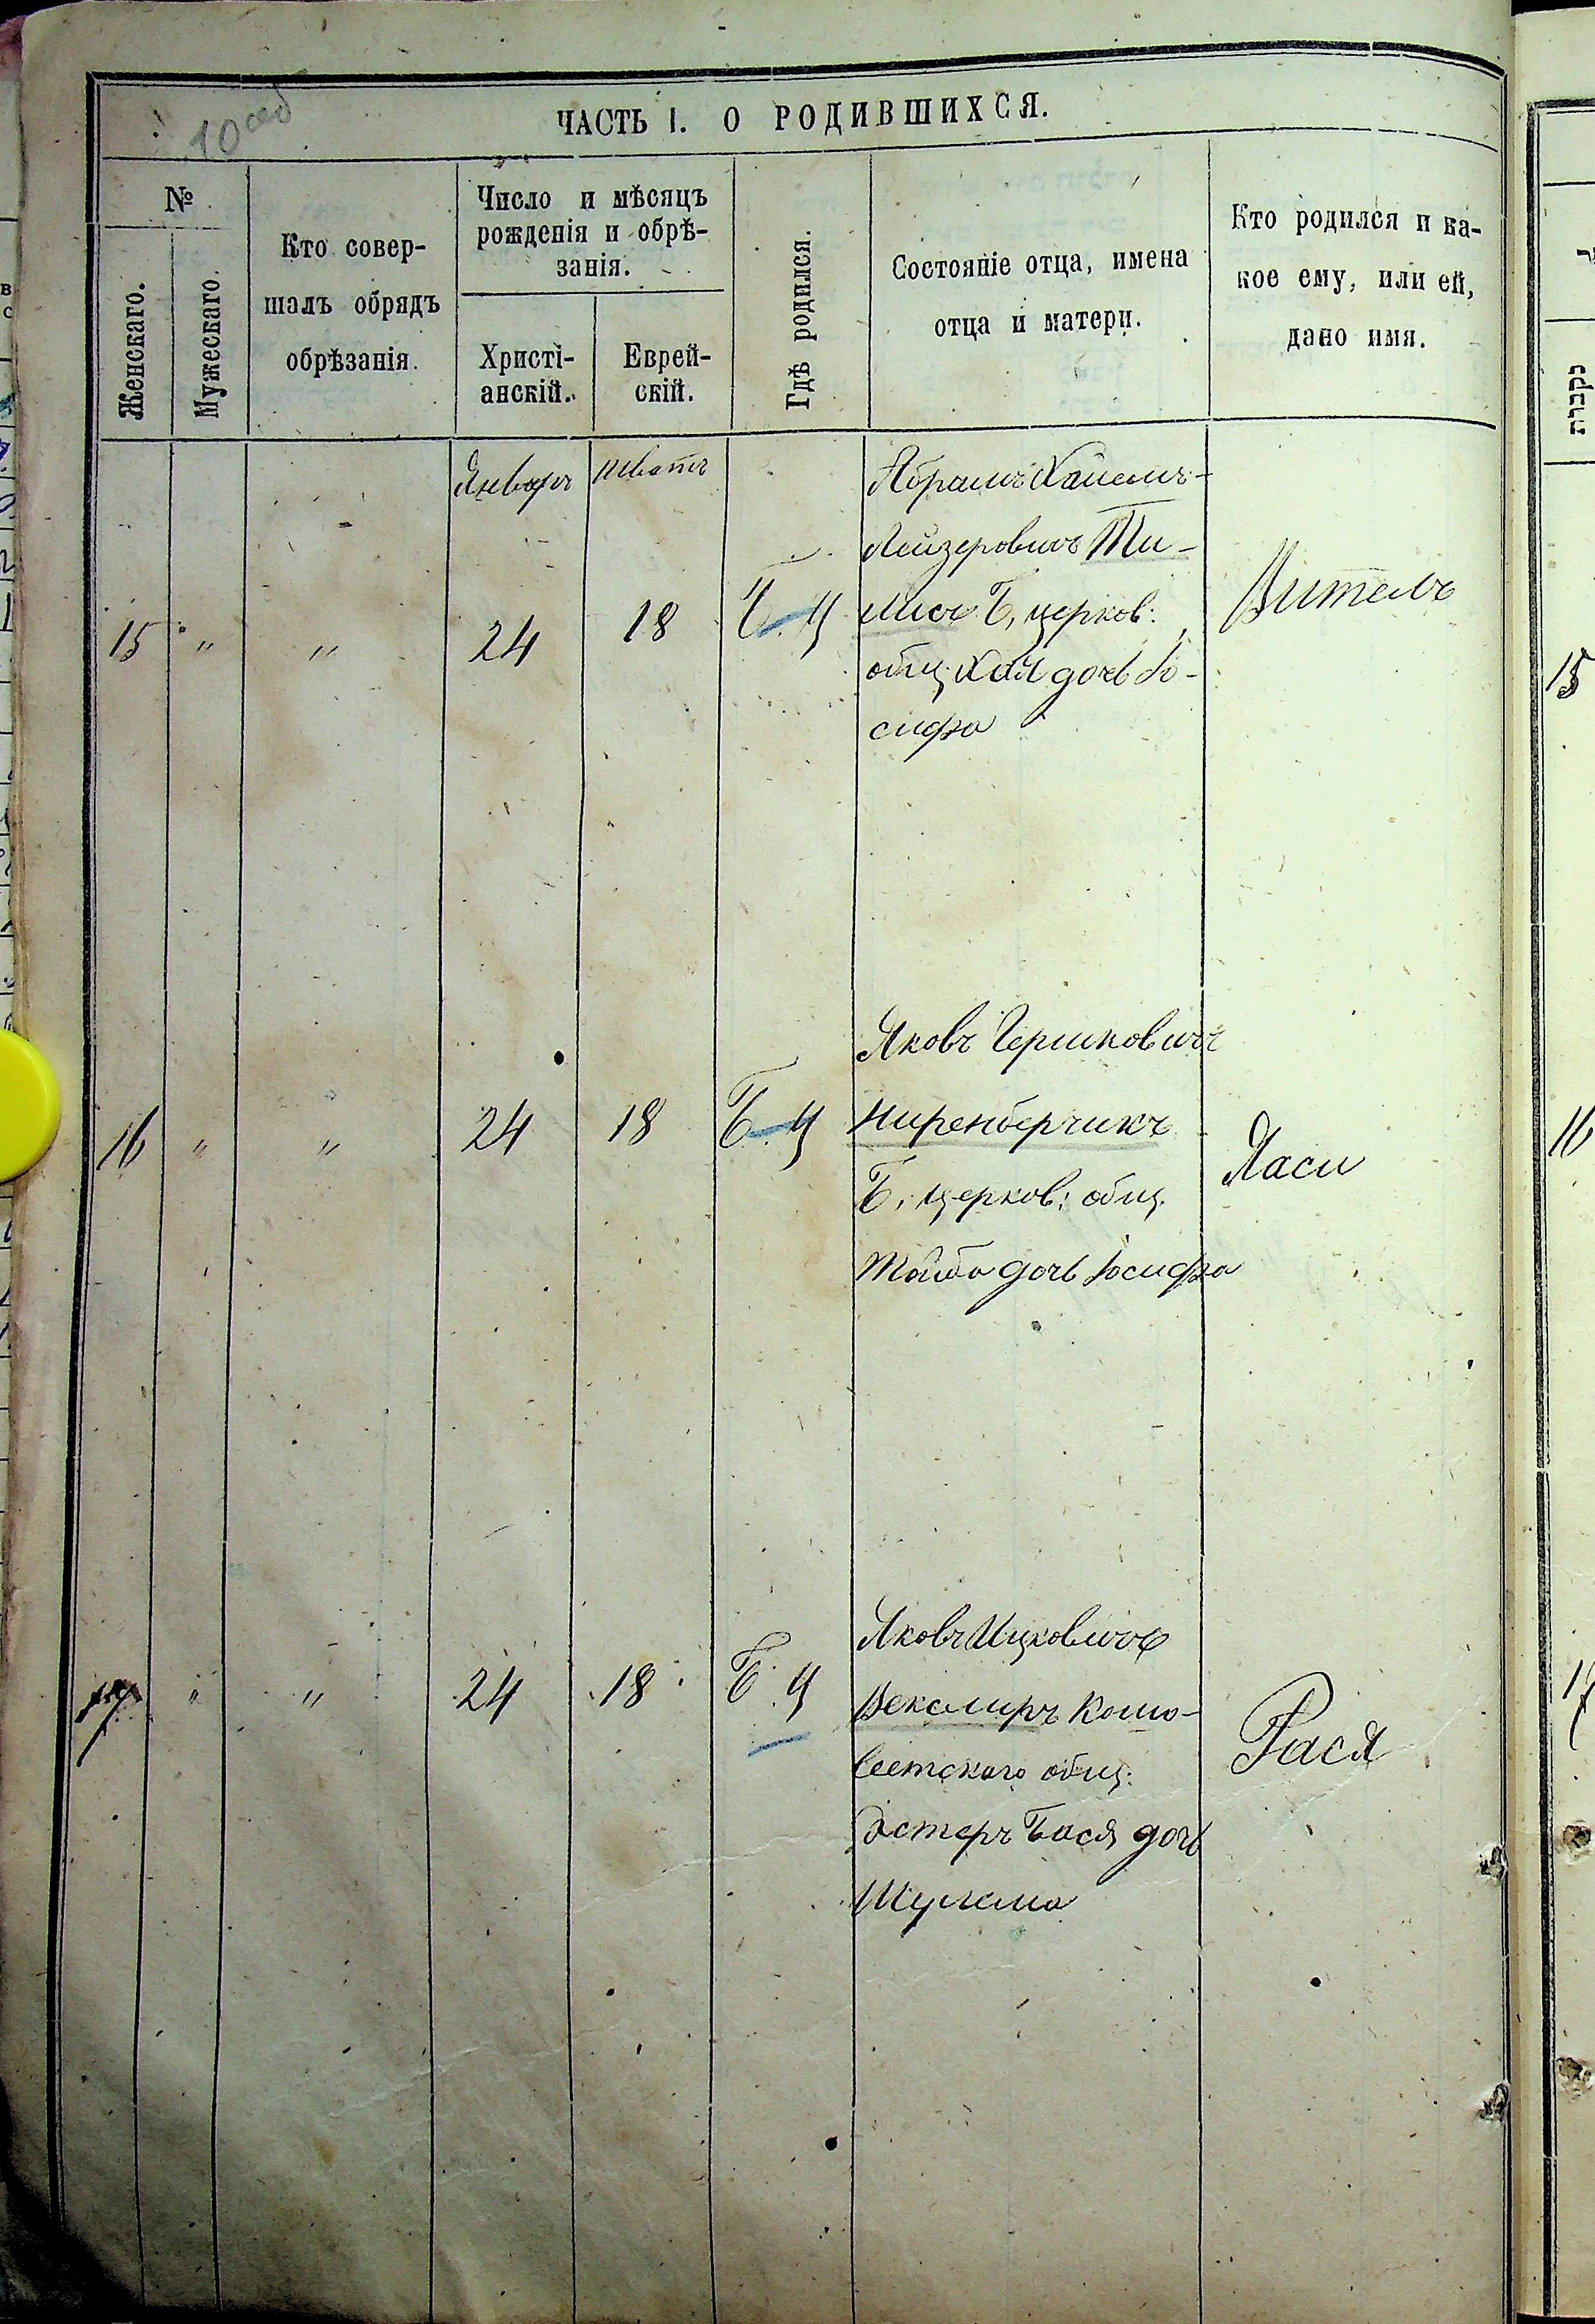 10 об
ЧАСТЬ I. О РОДИВШИХСЯ.
№
Женскаго.
Мужескаго.
Кто совер-
шалъ обрядъ
обрѣзанія.
Число и мѣсяцъ
рожденія и обрѣ-
занія.
Христі-
анскій.
Еврей-
скій.
Гдѣ родился.
Состояніе отца, имена
отца и матери.
Кто родился и ка-
кое ему, или ей,
дано имя.
Январь Шватъ
15 " " 24 18 Б. Ц
Абрамъ Хаимъ-
Лейзеровичъ Ти-
Б. церков:
общ: Хая дочь Іо-
сифа
Вителъ
15
16 " " 24 18 Б. Ц
Яковъ Гершковичъ
Ниренберчикъ
Б. церков: общ.
Тойба дочь Іосифа
Хаси
16
17 " " 24 18 Б. Ц
Яковъ Ицковичъ
Векслиръ Кошо-
ватскаго общ:
Эстеръ Бася дочь
Шулема
Рася
17